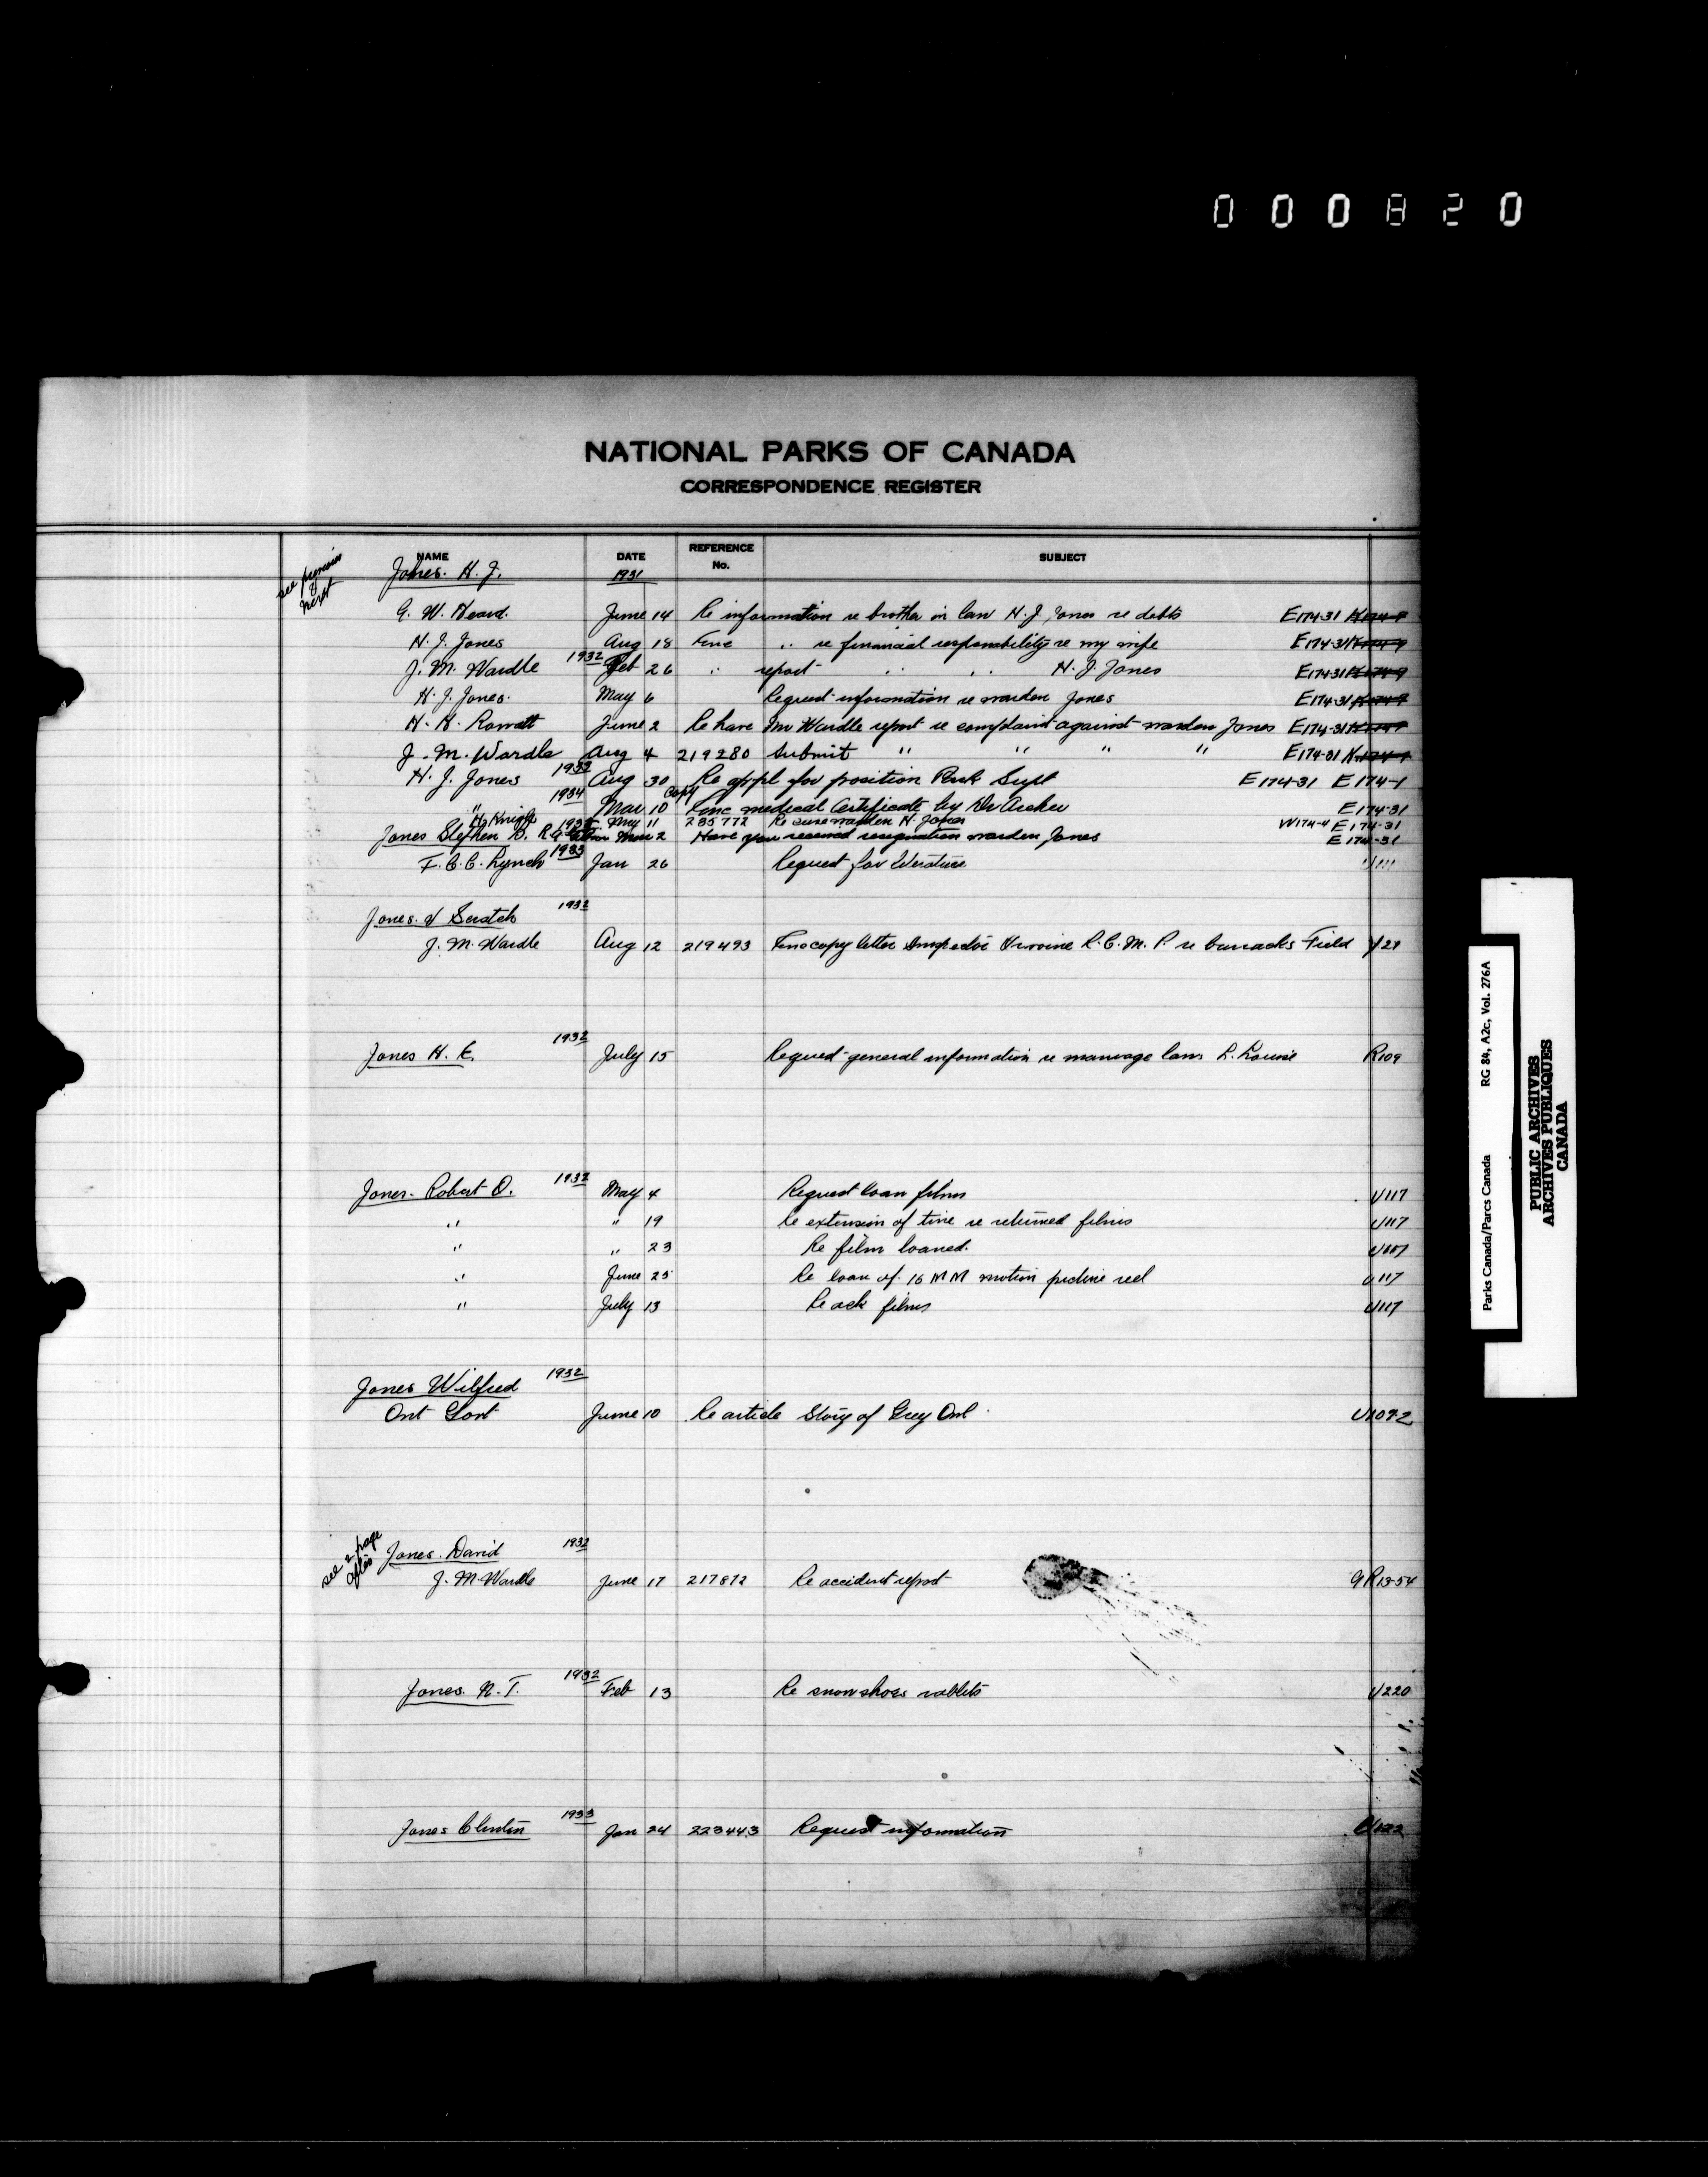 000820
NATIONAL PARKS OF CANADA
CORRESPONDENCE REGISTER
NAME DATE REFERENCE No. SUBJECT
Jones. H. J. 1931
G. W. Heard. June 14 Re information re brother in law H. J. Jones re debts E174-31
H. J. Jones Aug 18 Enc " re financial responsibility re my wife E174-31
J. M. Wardle 1932 Feb 26 " report " " H. J. Jones E174-31
H. J. Jones. May 6 Request information re warden Jones E174-31
H. H. Rowatt June 2 Re have Mr Wardle report re complaint against warden Jones E174-31
J. M. Wardle Aug 4 219280 Submit " " " " E174-31
H. J. Jones 1933 Aug 30 Re appl for position Park Supt E174-31 E174-1
" 1934 Mar 10 Copy Enc medical Certificate by Dr Archer E174-31
H. Knight May 11 285772 Re warden H. Jones W174-4 E174-31
Mar 2 Have you received resignation warden Jones E174-31
Jones Stephen B.
F. C. C. Lynch 1933 Jan 26 Request for literature
Jones & Scratch 1932
J. M. Wardle Aug 12 219493 Enc copy letter Inspector Irvine R. C. M. P. re barracks Field Y21
Jones H. E. 1932 July 15 Request general information re marriage laws L. Louise R109
Jones. Robert O. 1932 May 4 Request loan films U117
" " 19 Re extension of time re returned films U117
" " 23 Re film loaned. U117
" June 25 Re loan of 16 MM motion picture reel U117
" July 13 Re ack films U117
Jones Wilfred 1932
Ont Govt June 10 Re article Story of Grey Owl U109-2
see 2 page after
Jones. David 1932
J. M. Wardle June 17 217872 Re accident report GR13-54
Jones. N. T. 1932 Feb 13 Re snow shoes rabbits U220
Jones Clinton 1933 Jan 24 223443 Request information
Parks Canada/Parcs Canada RG 84, A2c, Vol. 276A
PUBLIC ARCHIVES
ARCHIVES PUBLIQUES
CANADA